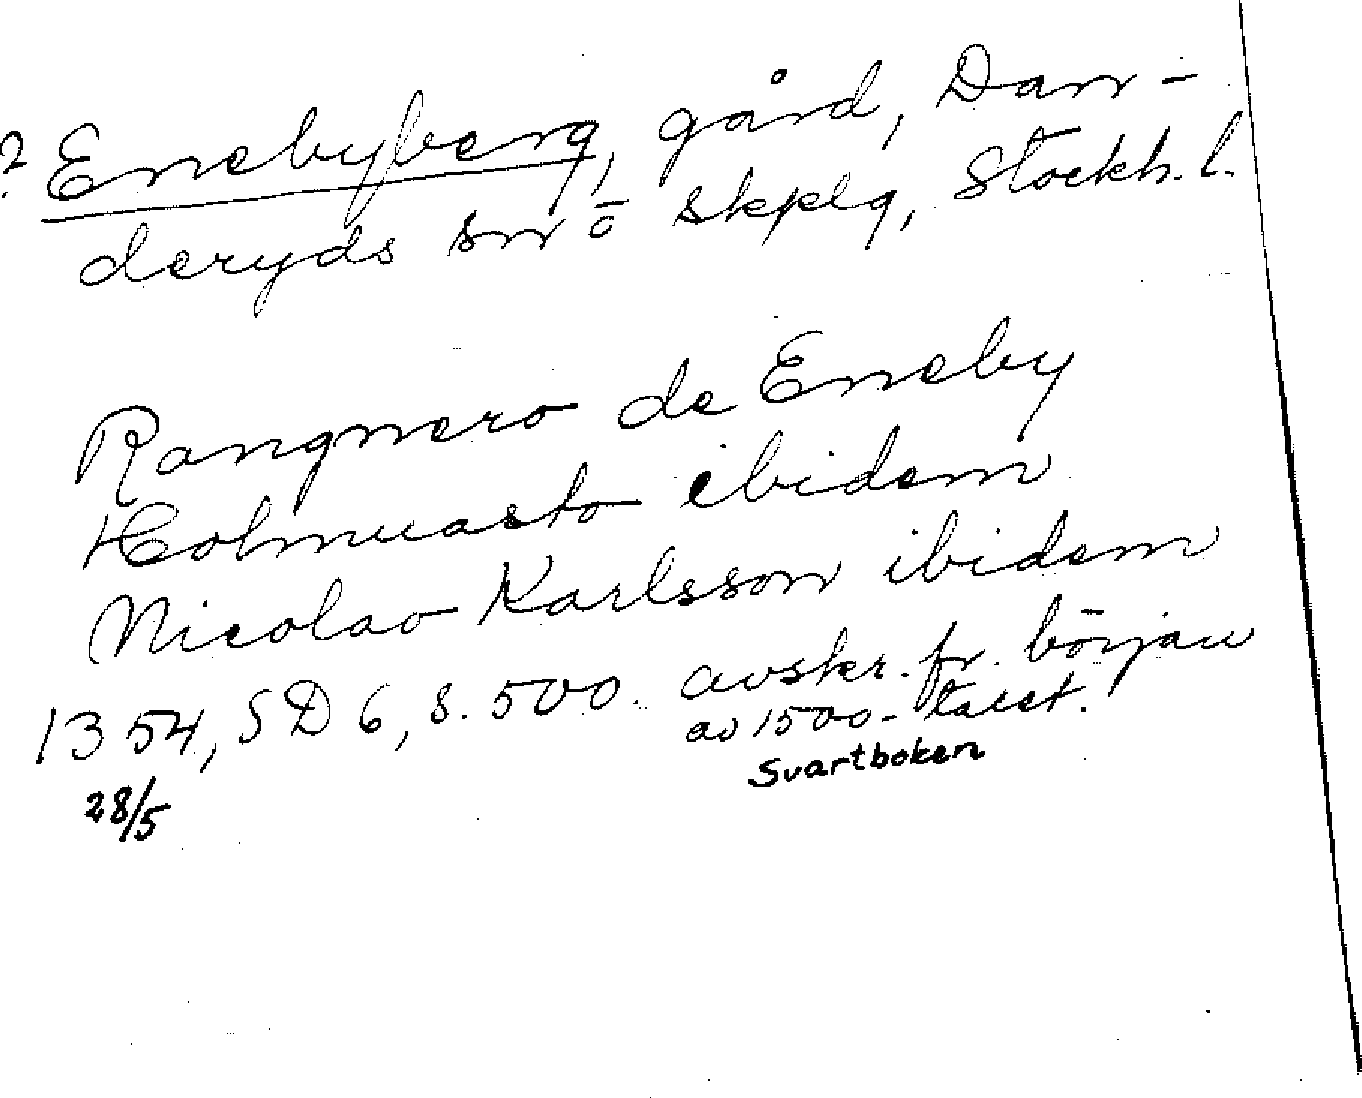 ? Enebyberg, gård, Dan-
deryds sn o skplg, Stockh. l.
Rangnero de Eneby
Holmuasto ibidem
Nicolao Karlsson ibidem
1354, SD 6, s. 500. avskr. fr. början
av 1500-talet.
Svartboken
28/5